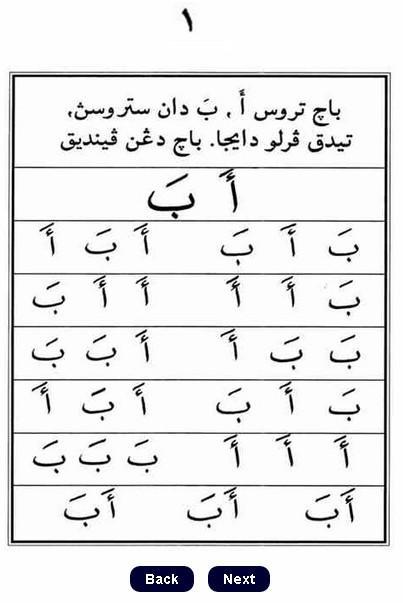 ١
باچ تروس أَ ، بَ دان ستروسڽ،
تيدق ڤرلو دايجا. باچ دڠن ڤينديق
أَ بَ
بَ أَ بَ أَ بَ أَ
بَ أَ أَ أَ أَ بَ
بَ بَ أَ أَ بَ بَ
بَ أَ بَ أَ بَ أَ
أَ أَ أَ بَ بَ بَ
أَبَ أَبَ أَبَ
Back Next